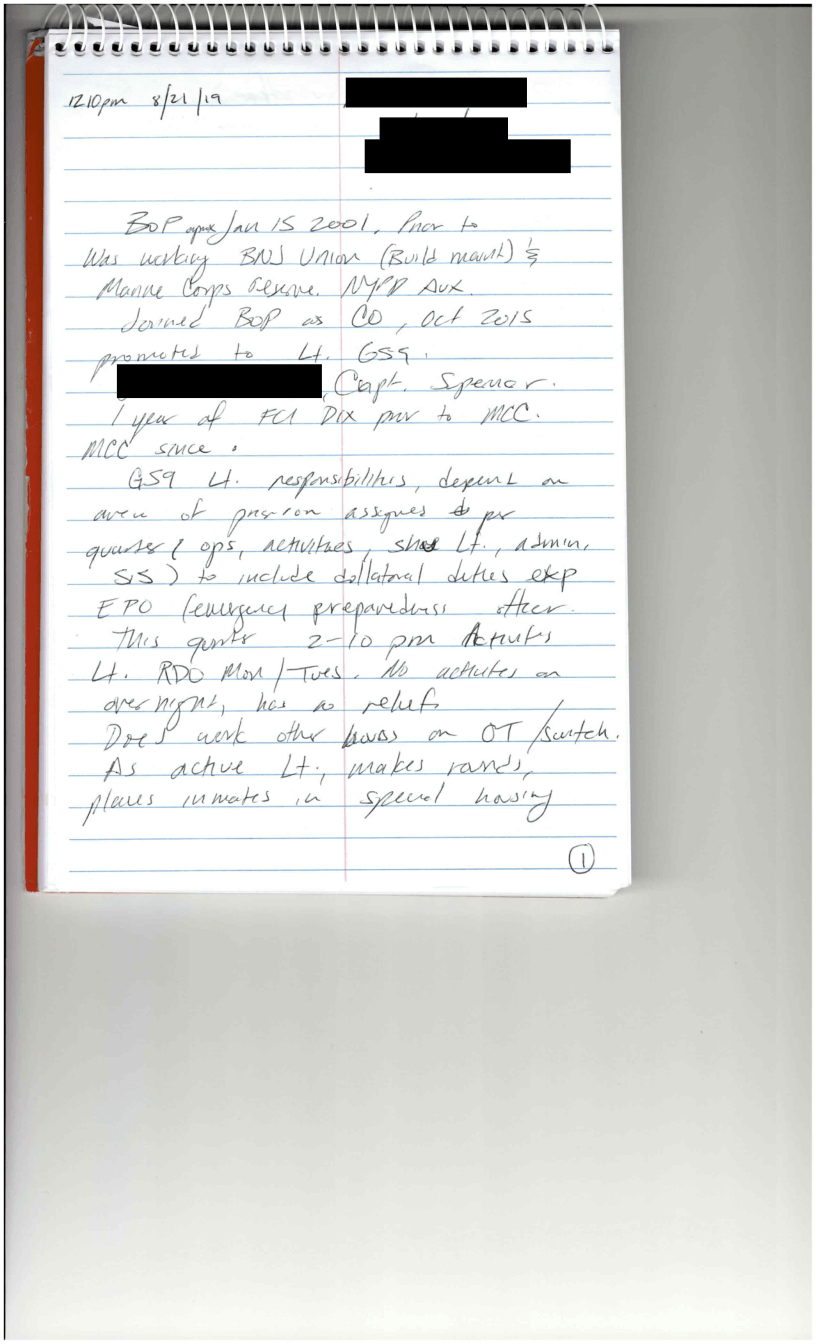 12 10pm 8/21/19
BOP aprox Jan 15 2001. Prior to
Was working BNJ Union (Build maint) &
Marine Corps reserve. NYPD Aux.
Joined BOP as CO, Oct 2015
promoted to Lt. GS9.
, Capt. Superior.
1 year at FCI DIX prior to MCC.
MCC since.
GS9 Lt. responsibilities, depend on
area of prision assignes per
quarter ( ops, activities, shu Lt., admin,
SIS ) to include collatoral duties exp
EPO (emergency preparedness officer.
This quarter 2-10 pm Activites
Lt. RDO Mon/Tues. No activites on
overnight, has no relief.
Does work other hours on OT /switch.
As active Lt., makes rounds,
places inmates in special housing
1